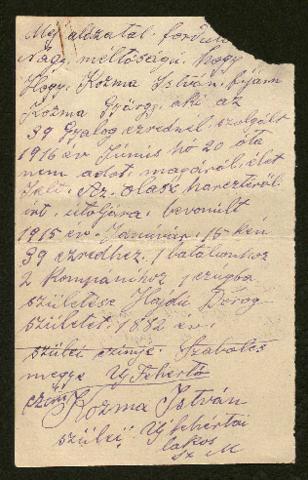 Mély alázatal fordul
Nagy méltóságú, hogy
Hogy, Kozma István, fijam
Kozma György, aki az
39 Gyalog ezrednél, szolgált
1916 év Június hó 20 óta
nem adot, magáról, élet
Jelt. Az. olasz harcztérről.
irt, utoljára, bevonult
1915 év. Januvár. 15 kén
39 ezredhez. 1 batalionhoz
2 Kompánihoz 1 czugba
születése Hajdu Dorog
született. 1882 év.
szülei czimje. Szabolcs
megye Uj Fehértó
Kozma István
szülei Uj fehértói
lakos